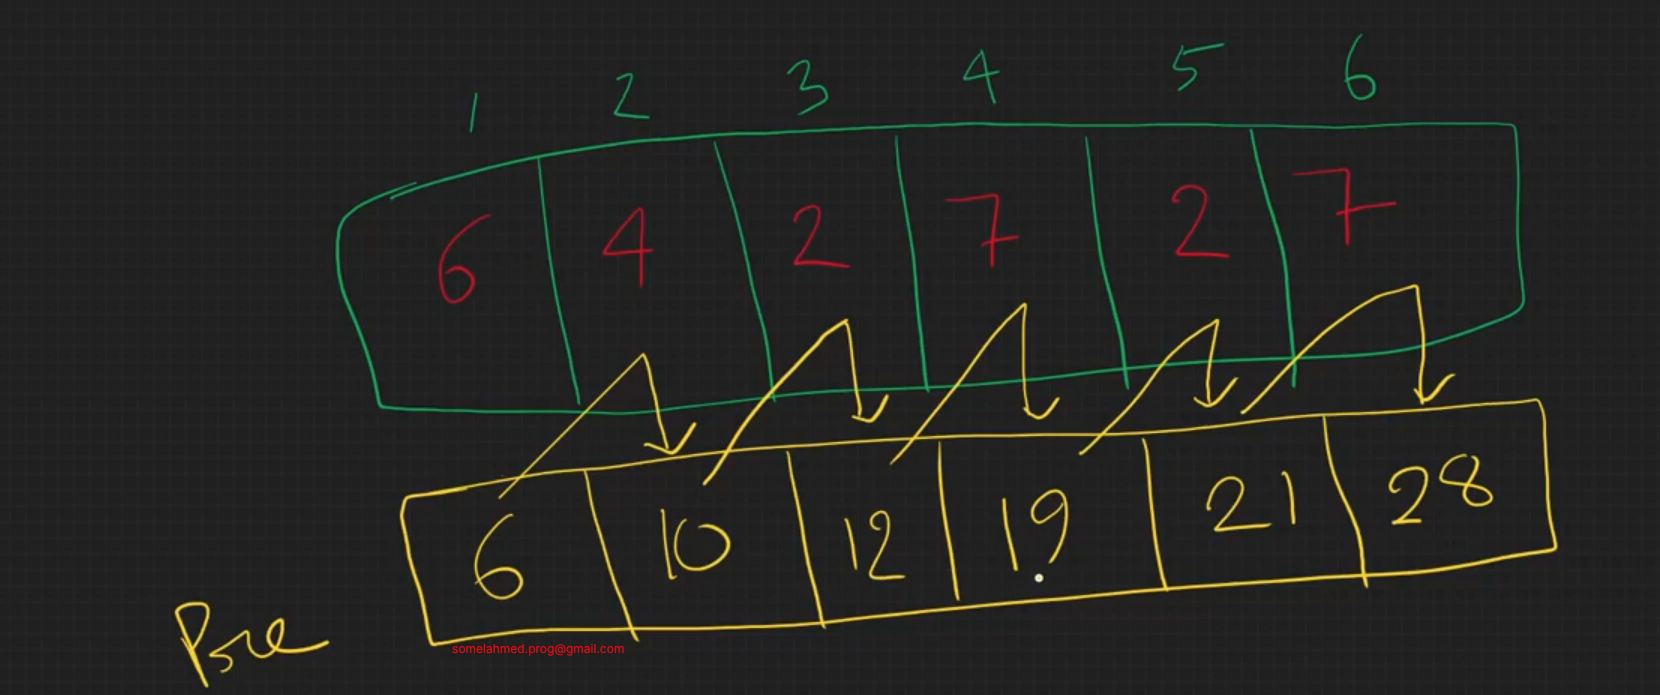 1 2 3 4 5 6
6 4 2 7 2 7
6 10 12 19 21 28
Pre
somelahmed.prog@gmail.com